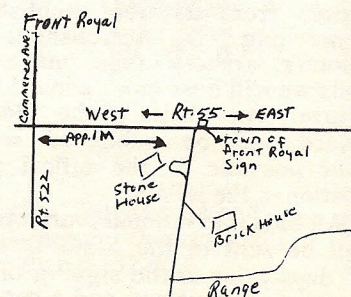 Front Royal
Commerce Ave.
West ← Rt.55 → EAST
App.1M
town of
Front Royal
Sign
Stone
House
Rt.522
Brick House
Range